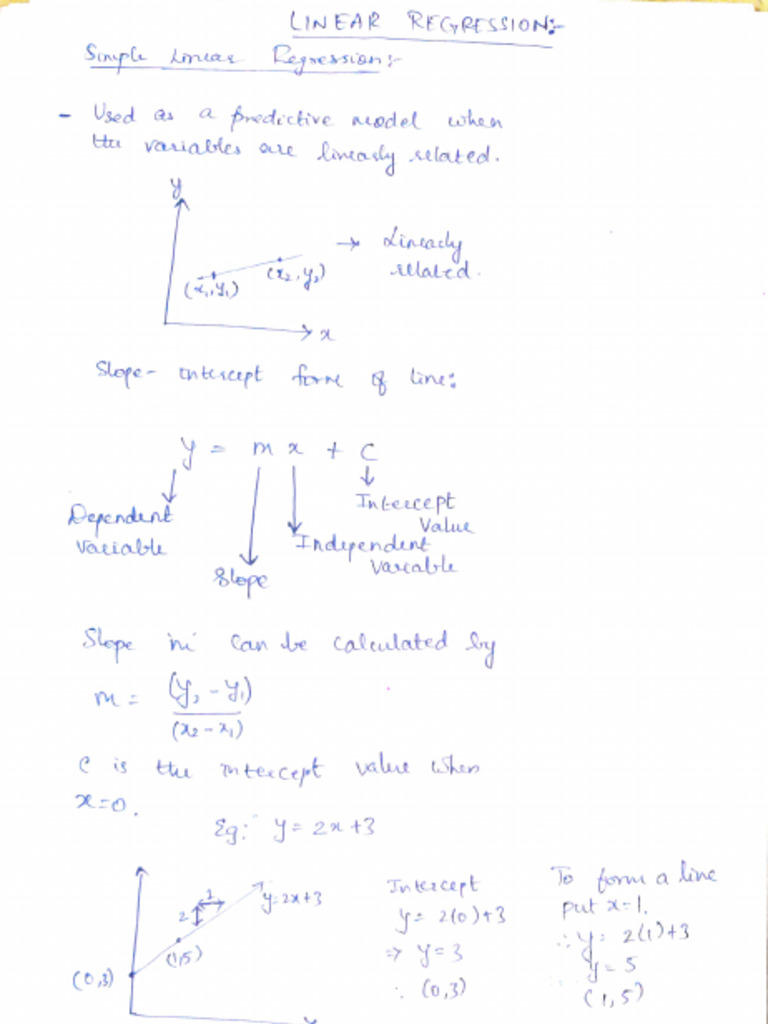 LINEAR REGRESSION:-
Simple Linear Regression:-
- Used as a predictive model when
the variables are linearly related.
y
(x₁,y₁) (x₂,y₂)
→ Linearly
related.
x
Slope-intercept form of line:
y = mx + C
Dependent
variable
Slope
Independent
variable
Intercept
Value
Slope 'm' can be calculated by
m = (y₂ - y₁)
(x₂ - x₁)
C is the intercept value when
x=0.
Eg:- y = 2x+3
1
2
y=2x+3
(1,5)
(0,3)
Intercept
y = 2(0)+3
⇒ y=3
∴ (0,3)
To form a line
put x=1.
∴ y = 2(1)+3
y=5
(1,5)